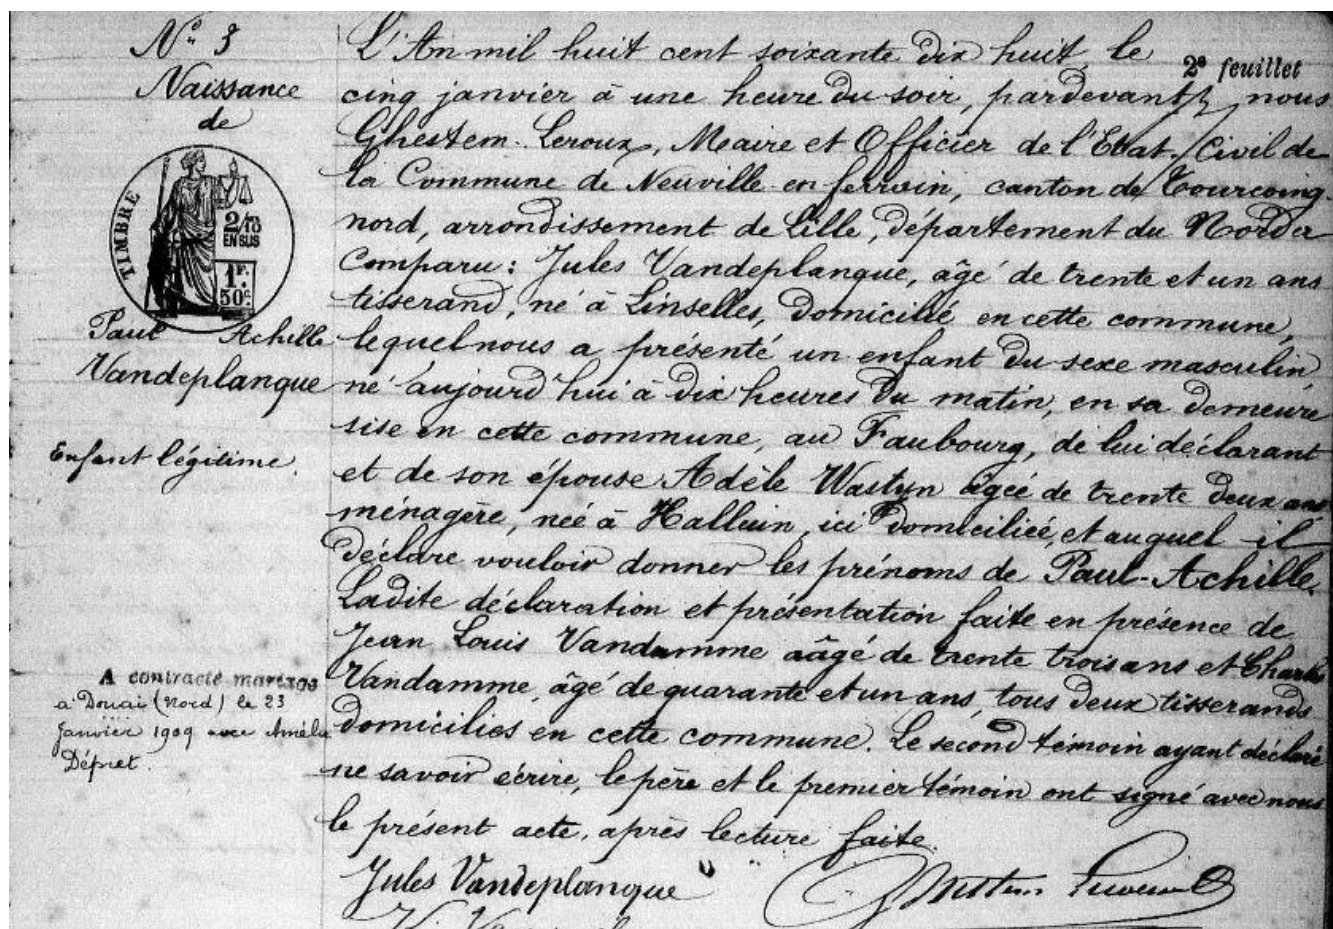 N° 3
Naissance
de
TIMBRE
2/10
EN SUS
1F.
50c.
Paul Achille
Vandeplanque
Enfant légitime.
A contracté mariage
à Douai (Nord) le 23
Janvier 1909 avec Amélie
Dépret.
2e feuillet
L'An mil huit cent soixante dix huit, le
cinq janvier à une heure du soir, pardevant nous
Ghestem Leroux, Maire et Officier de l'Etat Civil de
la Commune de Neuville-en-ferrain, canton de Tourcoing
nord, arrondissement de Lille, département du Nord a
Comparu: Jules Vandeplanque, âgé de trente et un ans
tisserand, né à Linselles, domicilié en cette commune,
lequel nous a présenté un enfant du sexe masculin
né aujourd'hui à dix heures du matin, en sa demeure
sise en cette commune, au Faubourg, de lui déclarant
et de son épouse Adèle Wastyn âgée de trente deux ans
ménagère, née à Halluin, ici domiciliée, et auquel il
déclare vouloir donner les prénoms de Paul-Achille.
Ladite déclaration et présentation faite en présence de
Jean Louis Vandamme âgé de trente trois ans et Charles
Vandamme, âgé de quarante et un ans, tous deux tisserands
domiciliés en cette commune. Le second témoin ayant déclaré
ne savoir écrire, le père et le premier témoin ont signé avec nous
le présent acte, après lecture faite.
Jules Vandeplanque